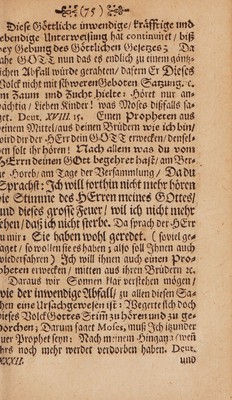 (75)
Diese Göttliche inwendige/ kräfftige und
lebendige Unterweisung hat continuiret/ biß
bey Gebung des Göttlichen Gesetzes; Da
sahe GOTT nun das es endlich zu einem gäntz-
lichen Abfall würde gerahten/ dafern Er Dieses
Volck nicht mit schweren Geboten Satzung. ꝛc.
im Zaum und Zucht hielte: Höret nur an-
dächtig/ Lieben Kinder! was Moses dißfalls sa-
get. Deut. XVIII. 15. Einen Propheten aus
deinem Mittel/aus deinen Brüdern wie ich bin/
wird dir der HErr dein GOTT erwecken/ densel-
ben solt ihr hören! Nach allem was du von
HErrn deinen Gott begehret hast/ am Ber-
ge Horeb/ am Tage der Versammlung/ Da du
Sprachst: Ich will forthin nicht mehr hören
die Stimme des HErren meines GOttes/
und dieses grosse Feuer/ will ich nicht mehr
sehen/ daß ich nicht sterbe. Da sprach der HErr
zu mir: Sie haben wohl geredet. (soviel ge-
saget/ so wollen sie es haben; also soll Ihnen auch
wiederfahren) Ich will ihnen auch einen Pro-
pheten erwecken/ mitten aus ihren Brüdern ꝛc.
Daraus wir Sonnen klar verstehen mögen/
wie der inwendige Abfall/ zu allen diesen Sa-
chen eine Ursach gewesen ist: Wegerte sich doch
dieses Volck Gottes Stim zu hören und zu ge-
horchen; Darum saget Moses, muß Ich itzunder
euer Prophet seyn: Nach meinem Hingang (weiß
Ihrs noch mehr werdet verdorben haben. Deut.
XXXII. und